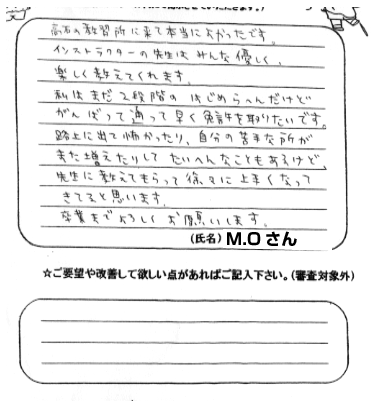 高石の教習所に来て本当によかったです。
インストラクターの先生はみんな優しく、
楽しく教えてくれます。
私はまだ2段階のはじめらへんだけど
がんばって通って早く免許を取りたいです。
路上に出て怖かったり、自分の苦手な所が
また増えたりして たいへんなこともあるけど、
先生に教えてもらって徐々に上手くなって
きてると思います。
卒業までよろしくお願いします。
(氏名) M.Oさん
☆ご要望や改善して欲しい点があればご記入下さい。(審査対象外)